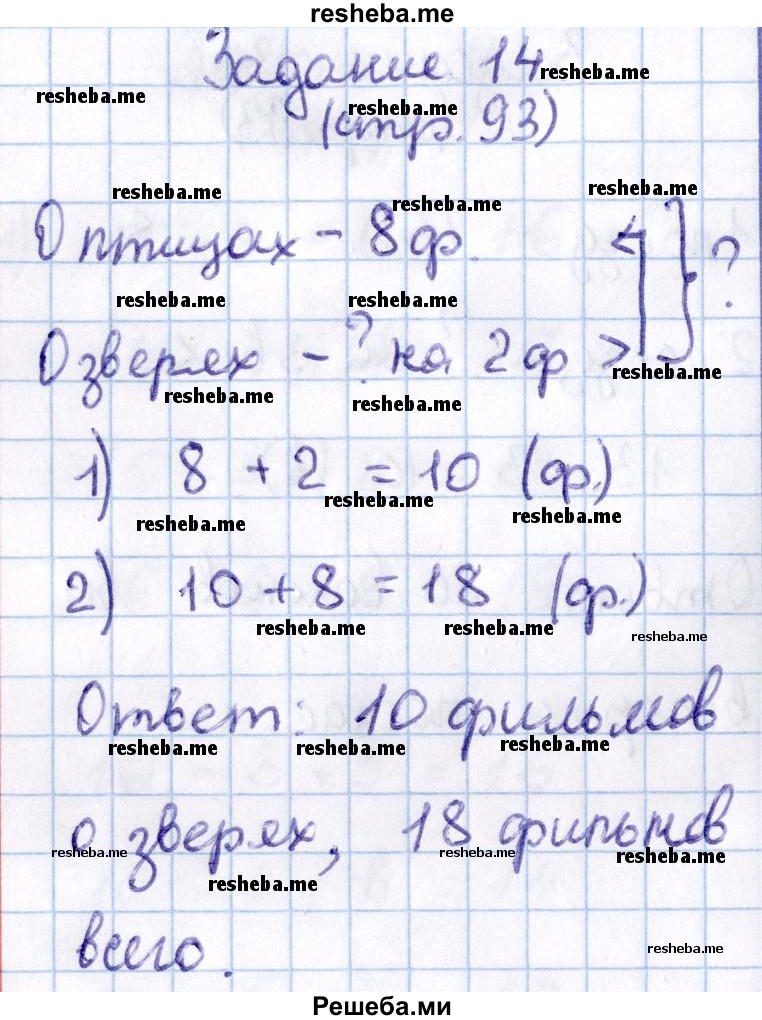 resheba.me
Задание 14
resheba.me
resheba.me
(стр. 93)
resheba.me
resheba.me
resheba.me
resheba.me
О птицах – 8 ф. ?
resheba.me
resheba.me
О зверях – ? на 2 ф >
resheba.me
resheba.me
resheba.me
1) 8 + 2 = 10 (ф.)
resheba.me
resheba.me
resheba.me
2) 10 + 8 = 18 (ф.)
resheba.me
resheba.me
resheba.me
Ответ: 10 фильмов
resheba.me
resheba.me
resheba.me
о зверях, 18 фильмов
resheba.me
resheba.me
resheba.me
resheba.me
всего.
resheba.me
Решеба.ми